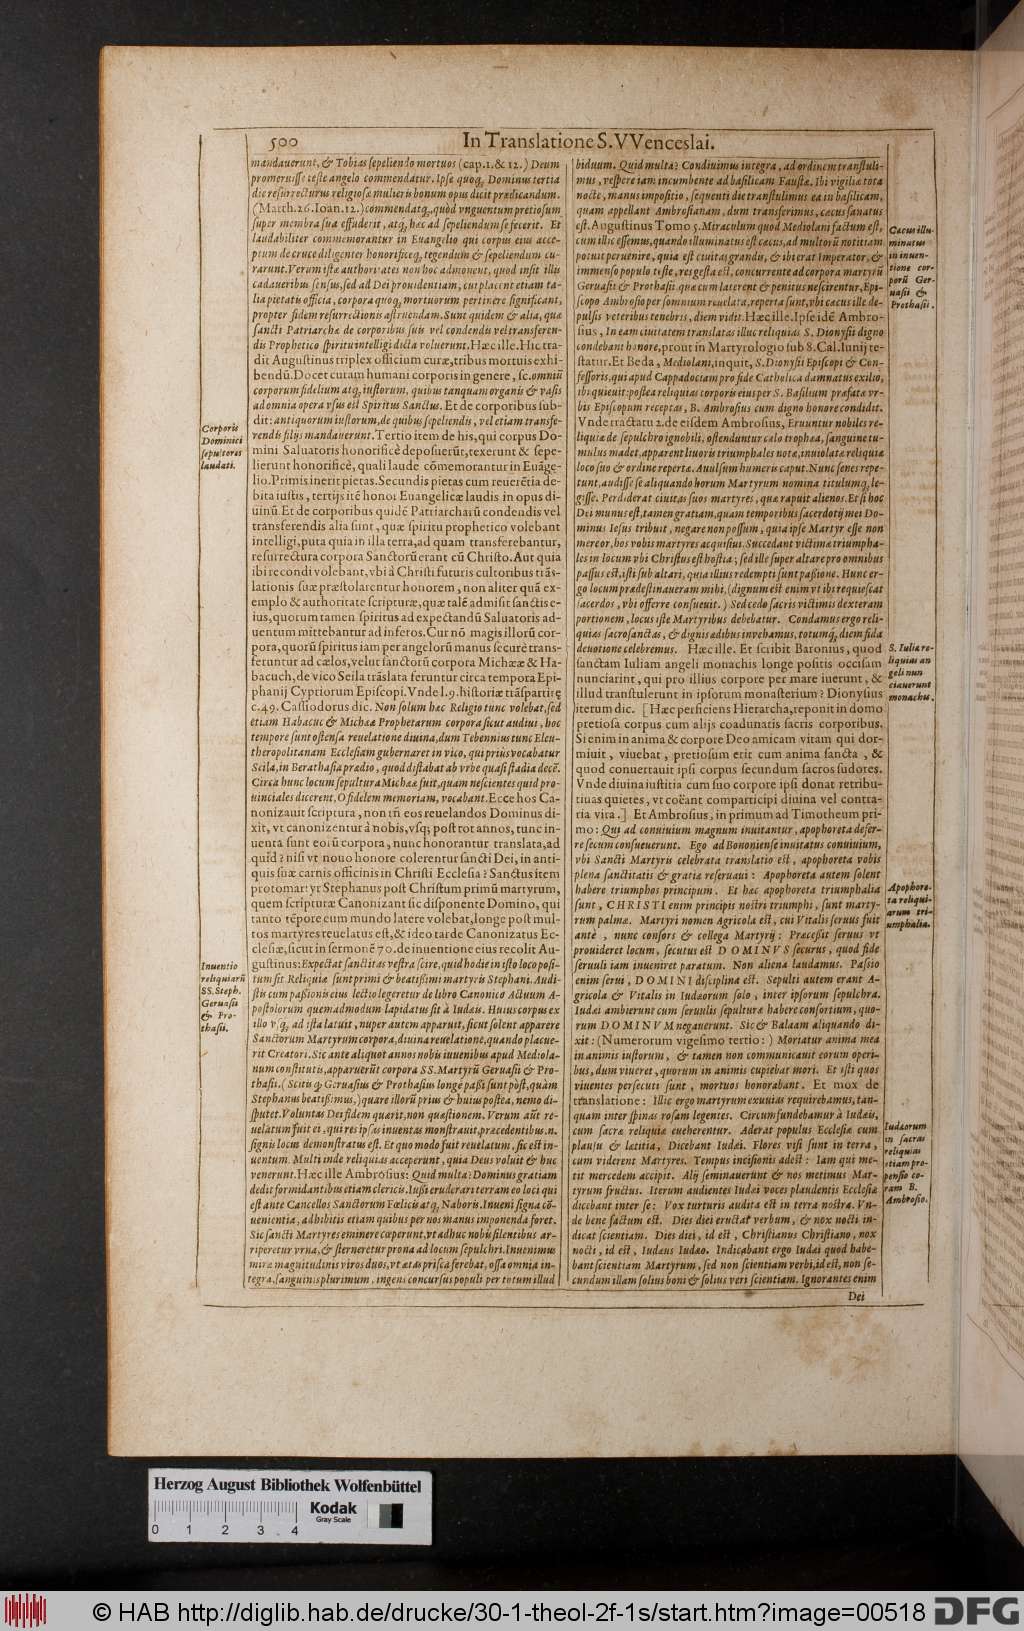 500
In Translatione S. VVenceslai.
mandauerunt, & Tobias sepeliendo mortuos (cap. 1. & 12.) Deum
promeruisse teste angelo commendatur. Ipse quoq; Dominus tertia
die resurrecturus religiosæ mulieris bonum opus dicit prædicandum.
(Matth. 26. Ioan. 12.) commendatq;, quòd vnguentum pretiosum
super membra sua effuderit, atq; hæc ad sepeliendum se fecerit. Et
laudabiliter commemorantur in Euangelio qui corpus eius acce-
ptum de cruce diligenter honorificeq; tegendum & sepeliendum cu-
rarunt. Verùm istæ authoritates non hoc admonent, quod insit illis
cadaueribus sensus, sed ad Dei prouidentiam, cui placent etiam ta-
lia pietatis officia, corpora quoq; mortuorum pertinere significant,
propter fidem resurrectionis astruendam. Sunt quidem & alia, quæ
sancti Patriarchæ de corporibus suis vel condendis vel transferen-
dis Prophetico spiritu intelligi dicta voluerunt. Hæc ille. Hîc tra-
dit Augustinus triplex officium curæ, tribus mortuis exhi-
bendū. Docet curam humani corporis in genere, sc. omniū
corporum fidelium atq; iustorum, quibus tanquam organis & vasis
ad omnia opera vsus est Spiritus Sanctus. Et de corporibus sub-
dit: antiquorum iustorum, de quibus sepeliendis, vel etiam transfe-
rendis filijs mandauerunt. Tertiò item de his, qui corpus Do-
mini Saluatoris honorificè deposuerūt, texerunt & sepe-
lierunt honorificè, quali laude cōmemorantur in Euāge-
lio. Primis inerit pietas. Secundis pietas cum reuerētia de-
bita iustis, tertijs itē honor Euangelicæ laudis in opus di-
uinū. Et de corporibus quidē Patriarchaiū condendis vel
transferendis alia sunt, quæ spiritu prophetico volebant
intelligi, puta quia in illa terra, ad quam transferebantur,
resurrectura corpora Sanctorū erant cū Christo. Aut quia
ibi recondi volebant, vbi à Christi futuris cultoribus trās-
lationis suæ præstolarentur honorem, non aliter quā ex-
emplo & authoritate scripturæ, quæ talē admisit sanctis e-
ius, quorum tamen spiritus ad expectandū Saluatoris ad-
uentum mittebantur ad inferos. Cur nō magis illorū cor-
pora, quorū spiritus iam per angelorū manus securè trans-
feruntur ad cælos, velut sanctorū corpora Michææ & Ha-
bacuch, de vico Seila trāslata feruntur circa tempora Epi-
phanij Cypriorum Episcopi. Vnde l. 9. historiæ trāspartitę
c. 49. Cassiodorus dic. Non solum hæc Religio tunc volebat, sed
etiam Habacuc & Michææ Prophetarum corpora sicut audiui, hoc
tempore sunt ostensa reuelatione diuina, dum Tebennius tunc Eleu-
theropolitanam Ecclesiam gubernaret in vico, qui priùs vocabatur
Scila, in Berathasia prædio, quod distabat ab vrbe quasi stadia decē.
Circa hunc locum sepultura Michææ fuit, quam nescientes quid pro-
uinciales dicerent, O fidelem memoriam, vocabant. Ecce hos Ca-
nonizauit scriptura, non tñ eos reuelandos Dominus di-
xit, vt canonizentur à nobis, vsq; post tot annos, tunc in-
uenta sunt eorū corpora, nunc honorantur translata, ad
quid? nisi vt nouo honore colerentur sancti Dei, in anti-
quis suæ carnis officinis in Christi Ecclesia? Sanctus item
protomartyr Stephanus post Christum primū martyrum,
quem scripturæ Canonizant sic disponente Domino, qui
tanto tēpore cum mundo latere volebat, longe post mul-
tos martyres reuelatus est, & ideo tarde Canonizatus Ec-
clesiæ, sicut in sermonē 70. de inuentione eius recolit Au-
gustinus: Expectat sanctitas vestra scire, quid hodie in isto loco posi-
tum sit Reliquiæ sunt primi & beatissimi martyris Stephani. Audi-
stis cum passionis eius lectio legeretur de libro Canonico Actuum A-
postolorum quemadmodum lapidatus sit à Iudæis. Huius corpus ex
illo vsq; ad ista latuit, nuper autem apparuit, sicut solent apparere
Sanctorum Martyrum corpora, diuina reuelatione, quando placue-
rit Creatori. Sic ante aliquot annos nobis iuuenibus apud Mediola-
num constitutis, apparuerūt corpora SS. Martyrū Geruasii & Pro-
thasii. (Scitis q; Geruasius & Prothasius longè passi sunt pòst, quàm
Stephanus beatissimus,) quare illorū prius & huius postea, nemo di-
sputet. Voluntas Dei fidem quærit, non quæstionem. Verum aūt re-
uelatum fuit ei, qui res ipsas inuentas monstrauit, præcedentibus. n.
signis locus demonstratus est. Et quo modo fuit reuelatum, sic est in-
uentum. Multi inde reliquias acceperunt, quia Deus voluit & huc
venerunt. Hæc ille Ambrosius: Quid multa: Dominus gratiam
dedit formidantibus etiam clericis. Iussi eruderari terram eo loci qui
est ante Cancellos Sanctorum Fœlicis atq; Naboris. Inueni signa cō-
uenientia, adhibitis etiam quibus per nos manus imponenda foret.
Sic sancti Martyres eminere cœperunt, vt adhuc nobis silentibus ar-
riperetur vrna, & sterneretur prona ad locum sepulchri. Inuenimus
miræ magnitudinis viros duos, vt ætas prisca ferebat, ossa omnia in-
tegra, sanguinis plurimum, ingens concursus populi per totum illud
Corporis
Dominici
sepultores
laudati.
Inuentio
reliquiarū
SS. Steph.
Geruasii
& Pro-
thasii.
biduum. Quid multa? Condiuimus integra, ad ordinem transtuli-
mus, vespere iam incumbente ad basilicam Faustæ. Ibi vigiliæ tota
nocte, manus impositio, sequenti die transtulimus ea in basilicam,
quam appellant Ambrosianam, dum transferimus, cæcus sanatus
est. Augustinus Tomo 5. Miraculum quod Mediolani factum est,
cum illic essemus, quando illuminatus est cæcus, ad multorū notitiam
potuit peruenire, quia est ciuitas grandis, & ibi erat Imperator, &
immenso populo teste, res gesta est, concurrente ad corpora martyrū
Geruasii & Prothasii. quæ cum laterent & penitus nescirentur, Epi-
scopo Ambrosio per somnium reuelata, reperta sunt, vbi cæcus ille de-
pulsis veteribus tenebris, diem vidit. Hæc ille. Ipse idē Ambro-
sius, In eam ciuitatem translatas illuc reliquias S. Dionysii digno
condebant honore, prout in Martyrologio sub 8. Cal. Iunij te-
statur. Et Beda, Mediolani, inquit, S. Dionysii Episcopi & Con-
fessoris, qui apud Cappadociam pro fide Catholica damnatus exilio,
ibi quieuit: postea reliquias corporis eius per S. Basilium præfatæ vr-
bis Episcopum receptas, B. Ambrosius cum digno honore condidit.
Vnde tractatu 2. de eisdem Ambrosius, Eruuntur nobiles re-
liquiæ de sepulchro ignobili, ostenduntur cælo trophæa, sanguine tu-
mulus madet, apparent liuoris triumphales notæ, inuiolatæ reliquiæ
loco suo & ordine repertæ. Auulsum humeris caput. Nunc senes repe-
tunt, audisse se aliquando horum Martyrum nomina titulumq; le-
gisse. Perdiderat ciuitas suos martyres, quæ rapuit alienos. Et si hoc
Dei munus est, tamen gratiam, quam temporibus sacerdotij mei Do-
minus Iesus tribuit, negare non possum, quia ipse Martyr esse non
mereor, hos vobis martyres acquisiui. Succedant victimæ triumpha-
les in locum vbi Christus est hostia; sed ille super altare pro omnibus
passus est, isti sub altari, quia illius redempti sunt passione. Hunc er-
go locum prædestinaueram mihi, (dignum est enim vt ibi requiescat
sacerdos, vbi offerre consueuit.) Sed cedo sacris victimis dexteram
portionem, locus iste Martyribus debebatur. Condamus ergo reli-
quias sacrosanctas, & dignis ædibus inuehamus, totumq; diem fida
deuotione celebremus. Hæc ille. Et scribit Baronius, quod
sanctam Iuliam angeli monachis longe positis occisam
nunciarint, qui pro illius corpore per mare iuerunt, &
illud transtulerunt in ipsorum monasterium? Dionysius
iterum dic. [ Hæc perficiens Hierarcha, reponit in domo
pretiosa corpus cum alijs coadunatis sacris corporibus.
Si enim in anima & corpore Deo amicam vitam qui dor-
miuit, viuebat, pretiosum erit cum anima sancta, &
quod conuertauit ipsi corpus secundum sacros sudores.
Vnde diuina iustitia cum suo corpore ipsi donat retribu-
tiuas quietes, vt coëant comparticipi diuina vel contra-
ria vita. ] Et Ambrosius, in primum ad Timotheum pri-
mo: Qui ad conuiuium magnum inuitantur, apophoreta defer-
re secum consueuerunt. Ego ad Bononiense inuitatus conuiuium,
vbi Sancti Martyris celebrata translatio est, apophoreta vobis
plena sanctitatis & gratiæ reseruaui: Apophoreta autem solent
habere triumphos principum. Et hæc apophoreta triumphalia
sunt, CHRISTI enim principis nostri triumphi, sunt marty-
rum palmæ. Martyri nomen Agricola est, cui Vitalis seruus fuit
antè, nunc consors & collega Martyrij: Præcessit seruus vt
prouideret locum, secutus est DOMINVS securus, quod fide
seruuli iam inueniret paratum. Non aliena laudamus. Passio
enim serui, DOMINI disciplina est. Sepulti autem erant A-
gricola & Vitalis in Iudæorum solo, inter ipsorum sepulchra.
Iudæi ambierunt cum seruulis sepulturæ habere consortium, quo-
rum DOMINVM negauerunt. Sic & Balaam aliquando di-
xit: (Numerorum vigesimo tertio:) Moriatur anima mea
in animis iustorum, & tamen non communicauit eorum operi-
bus, dum viueret, quorum in animis cupiebat mori. Et isti quos
viuentes persecuti sunt, mortuos honorabant. Et mox de
translatione: Illic ergo martyrum exuuias requirebamus, tan-
quam inter spinas rosam legentes. Circumfundebamur à Iudæis,
cum sacræ reliquiæ eueherentur. Aderat populus Ecclesiæ cum
plausu & lætitia, Dicebant Iudæi. Flores visi sunt in terra,
cum viderent Martyres. Tempus incisionis adest: Iam qui me-
tit mercedem accipit. Alij seminauerunt & nos metimus Mar-
tyrum fructus. Iterum audientes Iudæi voces plaudentis Ecclesiæ
dicebant inter se: Vox turturis audita est in terra nostra. Vn-
de bene factum est. Dies diei eructat verbum, & nox nocti in-
dicat scientiam. Dies diei, id est, Christianus Christiano, nox
nocti, id est, Iudæus Iudæo. Indicabant ergo Iudæi quod habe-
bant scientiam Martyrum, sed non scientiam verbi, id est, non se-
cundum illam solius boni & solius veri scientiam. Ignorantes enim
Dei
Cæcus illu-
minatus
in inuen-
tione cor-
porū Ger-
uasii &
Prothasii.
S. Iulia re-
liquias an
geli nun
ciauerunt
monachis.
Apophore-
ta reliqui-
arum tri-
umphalia.
Iudæorum
in sacras
reliquias
etiam pro-
pensio co-
ram B.
Ambrosio.
Herzog August Bibliothek Wolfenbüttel
0 1 2 3 4
Kodak
Gray Scale
© HAB http://diglib.hab.de/drucke/30-1-theol-2f-1s/start.htm?image=00518
DFG